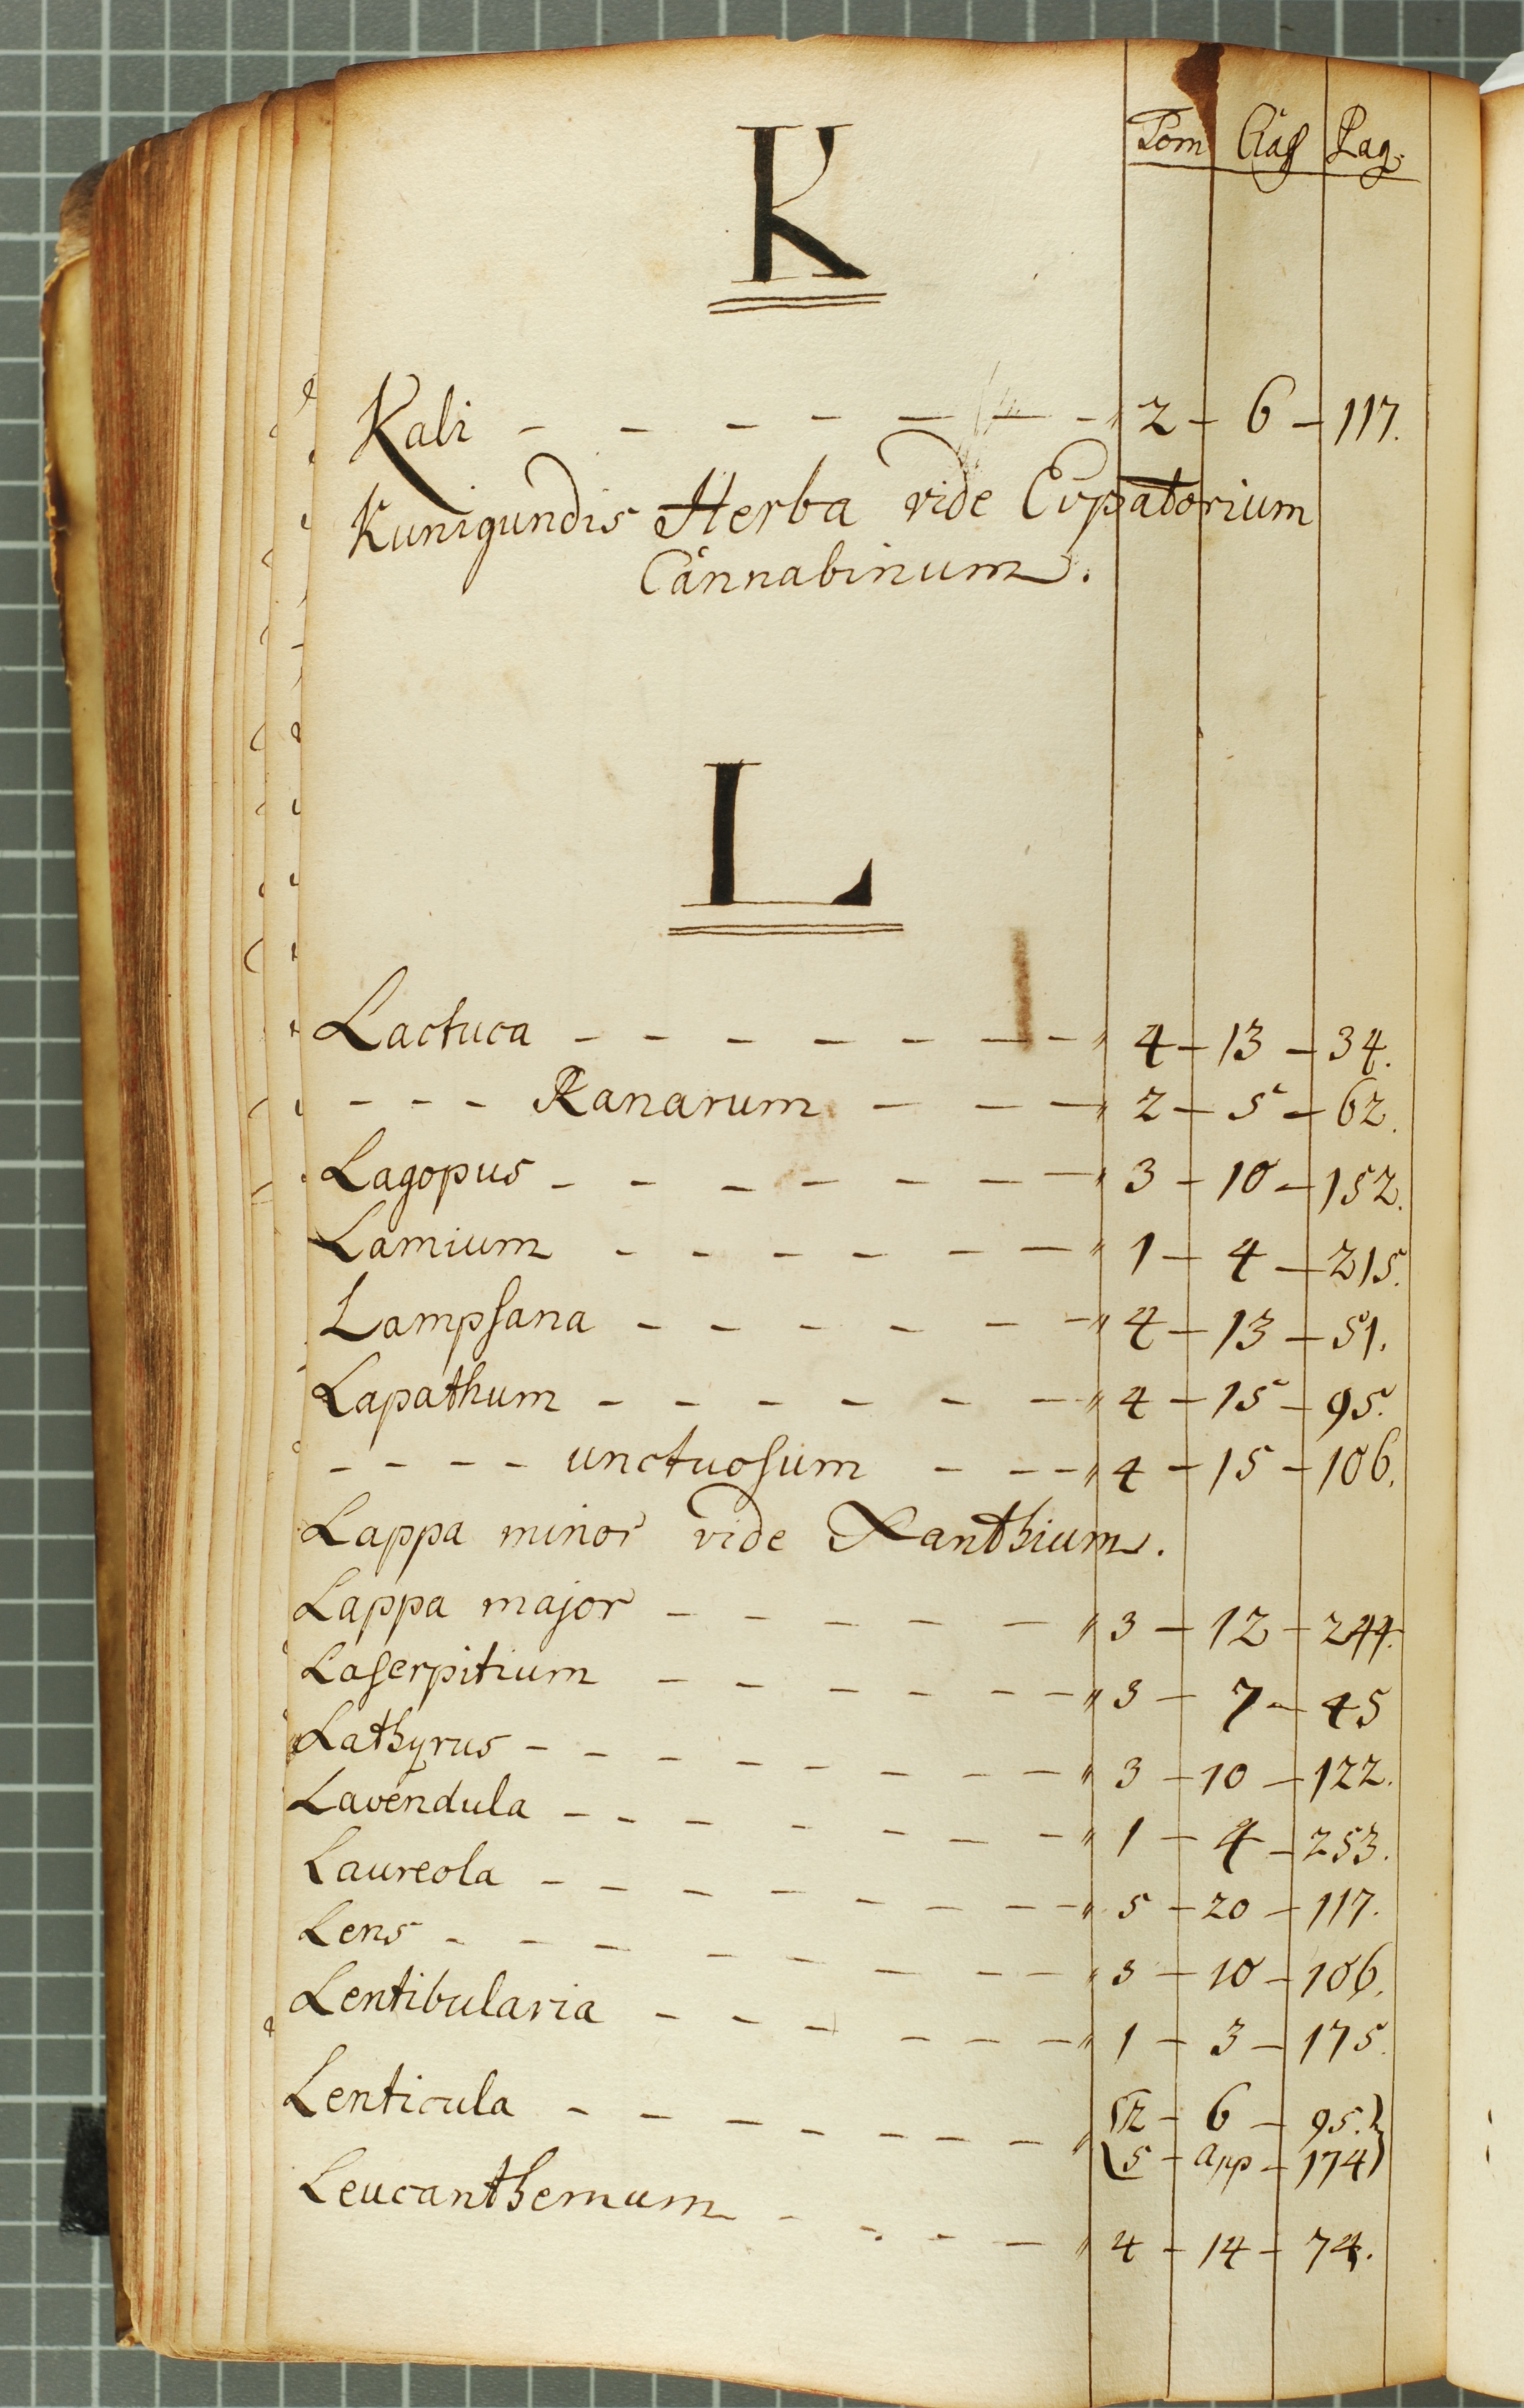 Tom Claſ Pag.
K
Kali - - - - - - - " 2 - 6 - 117.
Kunigundis Herba vide Eupatorium
Cannabinum.
L
Lactuca - - - - - - - " 4 - 13 - 34.
- - - Ranarum - - - " 2 - 5 - 62.
Lagopus - - - - - - - " 3 - 10 - 152.
Lamium - - - - - - " 1 - 4 - 215.
Lampſana - - - - - - " 4 - 13 - 51.
Lapathum - - - - - - " 4 - 15 - 95.
- - - - unctuoſum - - - " 4 - 15 - 106.
Lappa minor vide Xanthium.
Lappa major - - - - - " 3 - 12 - 244.
Laſerpitium - - - - - - " 3 - 7 - 45
Lathyrus - - - - - - - - " 3 - 10 - 122.
Lavendula - - - - - - - " 1 - 4 - 253.
Laureola - - - - - - - " 5 - 20 - 117.
Lens - - - - - - - - " 3 - 10 - 106.
Lentibularia - - - - - - " 1 - 3 - 175.
Lenticula - - - - - - - " { 2 - 6 - 95. }
{ 5 - app - 174 }
Leucanthemum - - - - " 4 - 14 - 74.